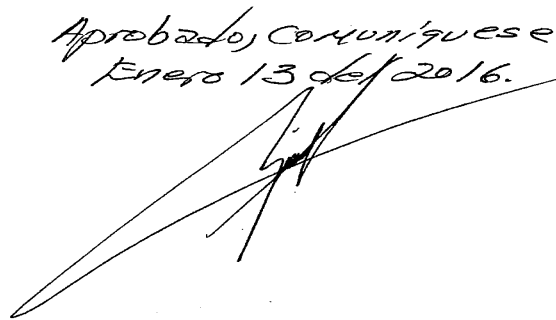 Aprobado, Comuníquese
Enero 13 del 2016.